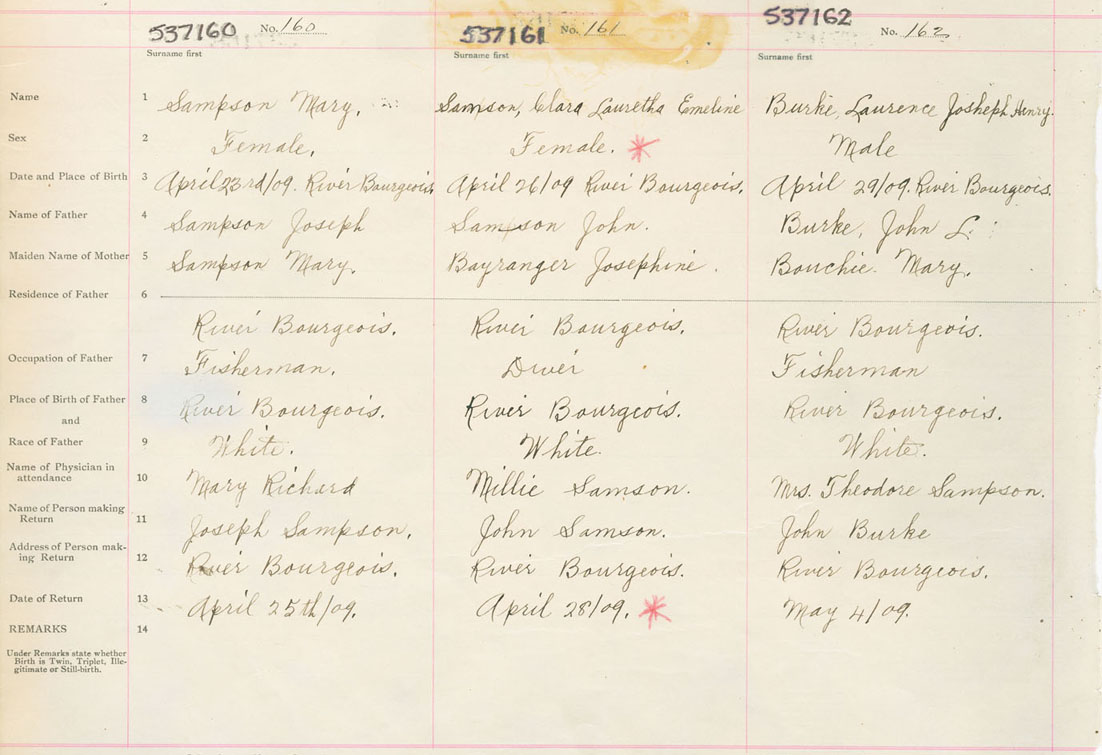 537160 No. 160 537161 No. 161 537162 No. 162
Surname first Surname first Surname first
Name 1 Sampson Mary. Samson, Clara Lauretha Emeline Burke, Laurence Josheph Henry.
Sex 2 Female. Female. Male
Date and Place of Birth 3 April 23rd/09. River Bourgeois. April 26/09 River Bourgeois. April 29/09. River Bourgeois.
Name of Father 4 Sampson Joseph Samson John. Burke, John L.
Maiden Name of Mother 5 Sampson Mary. Bayranger Josephine. Bouchie. Mary.
Residence of Father 6
River Bourgeois. River Bourgeois. River Bourgeois.
Occupation of Father 7 Fisherman. Diver Fisherman
Place of Birth of Father 8 River Bourgeois. River Bourgeois. River Bourgeois.
and
Race of Father 9 White. White. White.
Name of Physician in
attendance 10 Mary Richard Millie Samson. Mrs. Theodore Sampson.
Name of Person making
Return 11 Joseph Sampson. John Samson. John Burke
Address of Person mak-
ing Return 12 River Bourgeois. River Bourgeois. River Bourgeois.
Date of Return 13 April 25th/09. April 28/09. May 4/09.
REMARKS 14
Under Remarks state whether
Birth is Twin, Triplet, Ille-
gitimate or Still-birth.